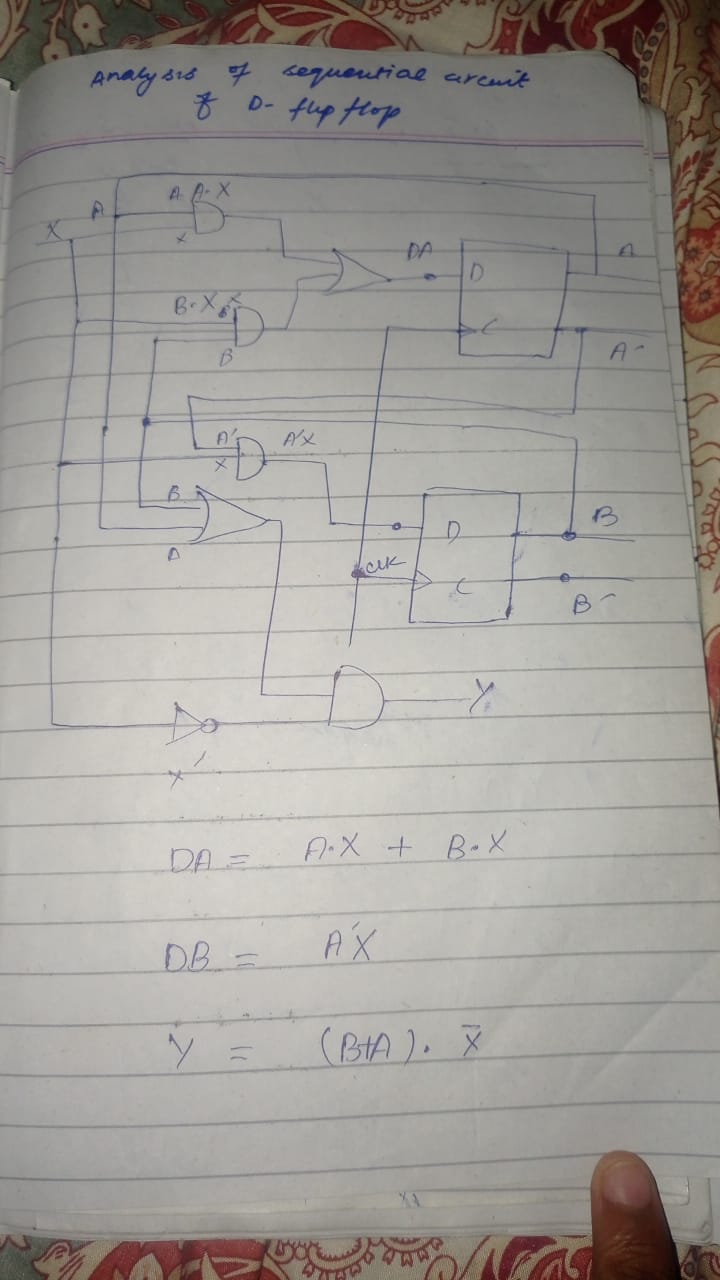 Analysis of sequential circuit
of D- flip flop
A A.X
A
X
x
DA
D
A
B.X
x
B
C
A'
A' A'X
x
B
B
D
A
CLK
C
B'
Y
x'
DA = A.X + B.X
DB = A'X
Y = (B+A). X̄